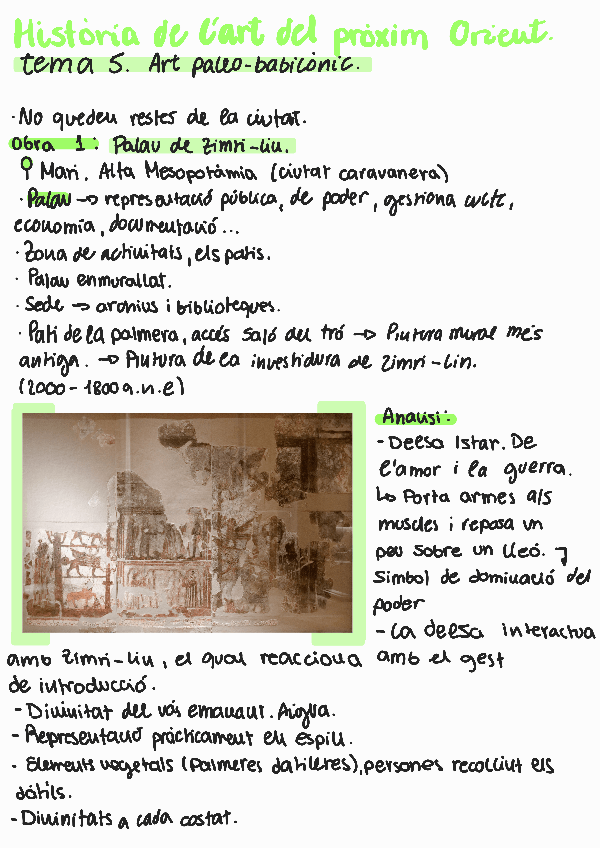 Història de l'art del pròxim Orient.
tema 5. Art paleo-babilònic.
· No queden restes de la ciutat.
Obra 1: Palau de Zimri-Lin.
Mari. Alta Mesopotàmia (ciutat caravanera)
· Palau → representació pública, de poder, gestiona culte,
economia, documentació...
· Zona de activitats, els patis.
· Palau enmurallat.
· Sede → archius i biblioteques.
· Pati de la palmera, accés saló del tró → Pintura mural més
antiga. → Pintura de la investidura de Zimri-Lin.
(2000-1800 a.n.e)
Analisi:
- Deesa Istar. De
l'amor i la guerra.
↳ Porta armes als
muscles i reposa un
peu sobre un lleó. ↴
Simbol de dominació del
poder
- La deesa interactua
amb Zimri-Lin, el qual reacciona amb el gest
de introducció.
- Divinitat del vós emanant. Aigua.
- Representació pràcticament en espill.
- Elements vegetals (Palmeres datileres), persones recollint els
dàtils.
- Divinitats a cada costat.